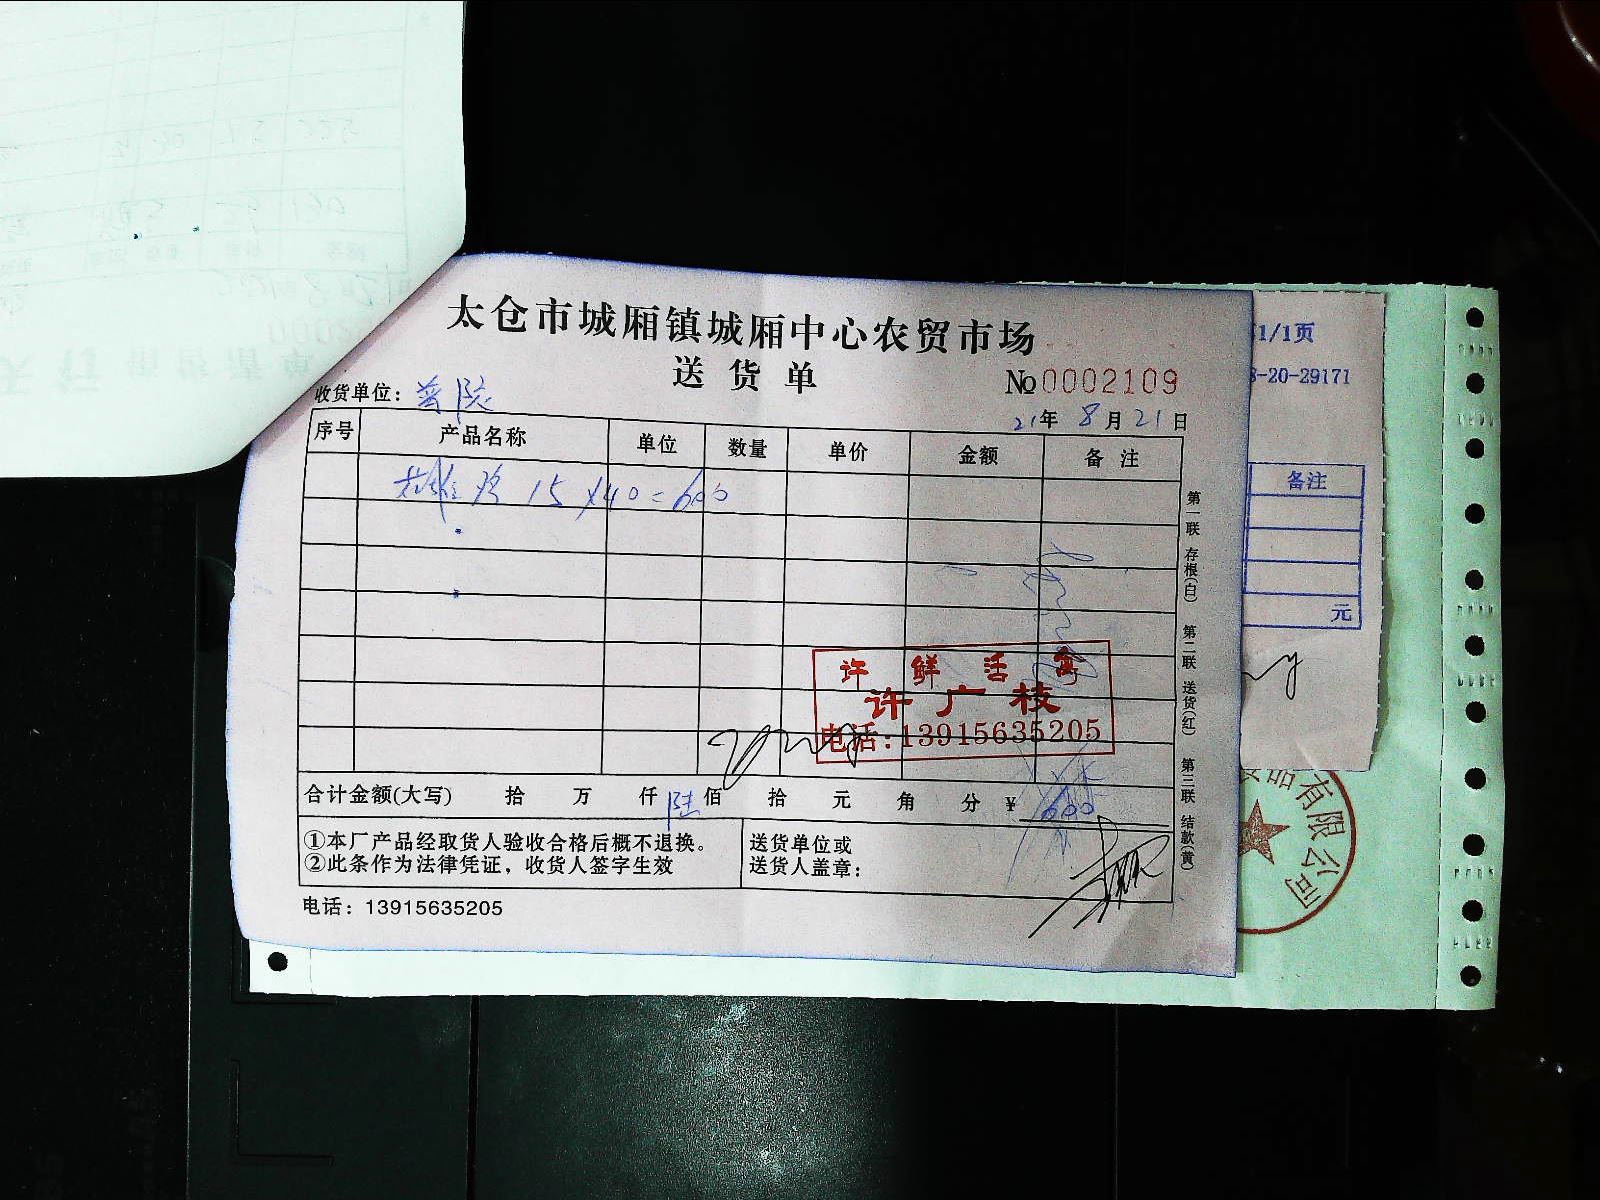 太仓市城厢镇城厢中心农贸市场
送货单
№0002109
收货单位：
21年 8月 21日
序号 产品名称 单位 数量 单价 金额 备注
15×40=600
许鲜活禽
许广枝
电话:13915635205
合计金额(大写) 拾 万 仟 陆佰 拾 元 角 分 ¥ 600
①本厂产品经取货人验收合格后概不退换。
②此条作为法律凭证，收货人签字生效
送货单位或
送货人盖章：
电话：13915635205
第一联 存根(白) 第二联 送货(红) 第三联 结款(黄)
1/1页
-20-29171
备注
元
品有限公司